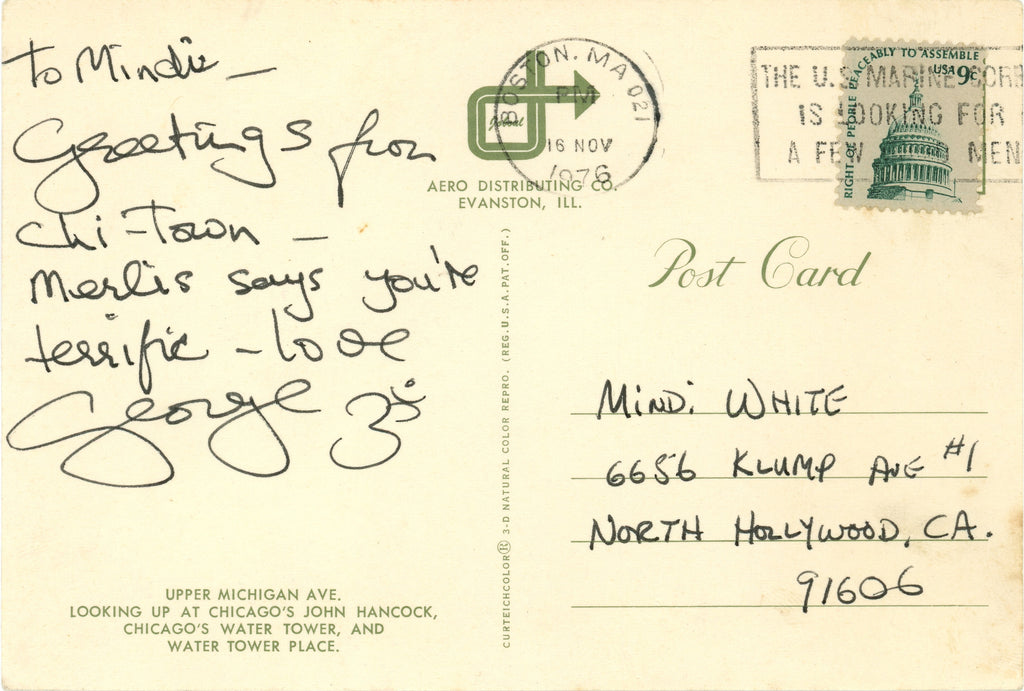 To Mindi —
Greetings from
Chi-Town —
Merlis says you're
terrific — love
George
BOSTON, MA 021
PM
16 NOV
1976
AERO DISTRIBUTING CO.
EVANSTON, ILL.
THE U.S. MARINE CORP
IS LOOKING FOR
A FEW MEN
RIGHT OF PEOPLE PEACEABLY TO ASSEMBLE
USA 9c
Post Card
CURTEICHCOLOR® 3-D NATURAL COLOR REPRO. (REG. U.S.A. PAT. OFF.)
MINDI WHITE
6656 KLUMP AVE #1
NORTH HOLLYWOOD, CA.
91606
UPPER MICHIGAN AVE.
LOOKING UP AT CHICAGO'S JOHN HANCOCK,
CHICAGO'S WATER TOWER, AND
WATER TOWER PLACE.